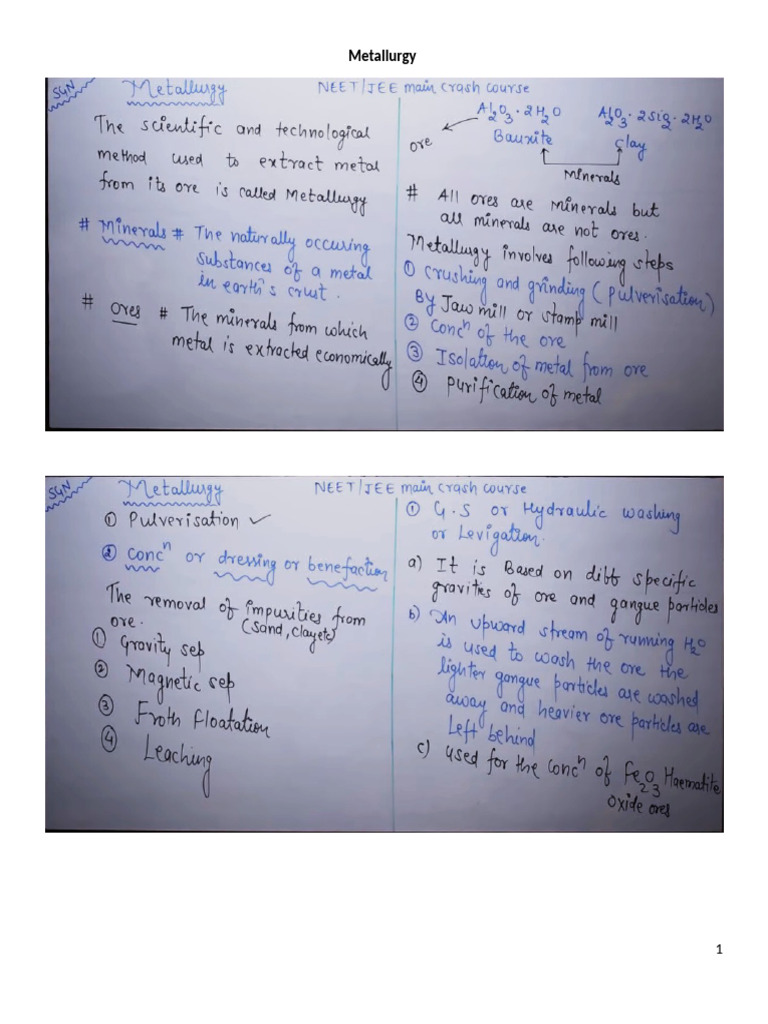 Metallurgy
SGN
Metallurgy
NEET/JEE main crash course
The scientific and technological
method used to extract metal
from its ore is called Metallurgy
# Minerals # The naturally occuring
substances of a metal
in earth's crust.
# Ores # The minerals from which
metal is extracted economically
Al2O3·2H2O Al2O3·2SiO2·2H2O
ore Bauxite clay
Minerals
# All ores are minerals but
all minerals are not ores.
Metallurgy involves following steps
① crushing and grinding (Pulverisation)
By Jaw mill or stamp mill
② Concn of the ore
③ Isolation of metal from ore
④ Purification of metal
SGN
Metallurgy
NEET/JEE main crash course
① Pulverisation ✓
② Concn or dressing or benefaction
The removal of impurities from
ore. (sand, clay etc)
① Gravity sep
② Magnetic sep
③ Froth floatation
④ Leaching
① G.S or Hydraulic washing
or Levigation.
a) It is Based on diff specific
gravities of ore and gangue particles
b) An upward stream of running H2O
is used to wash the ore the
lighter gangue particles are washed
away and heavier ore particles are
Left behind
c) used for the concn of Fe2O3 Haematite
Oxide ores
1